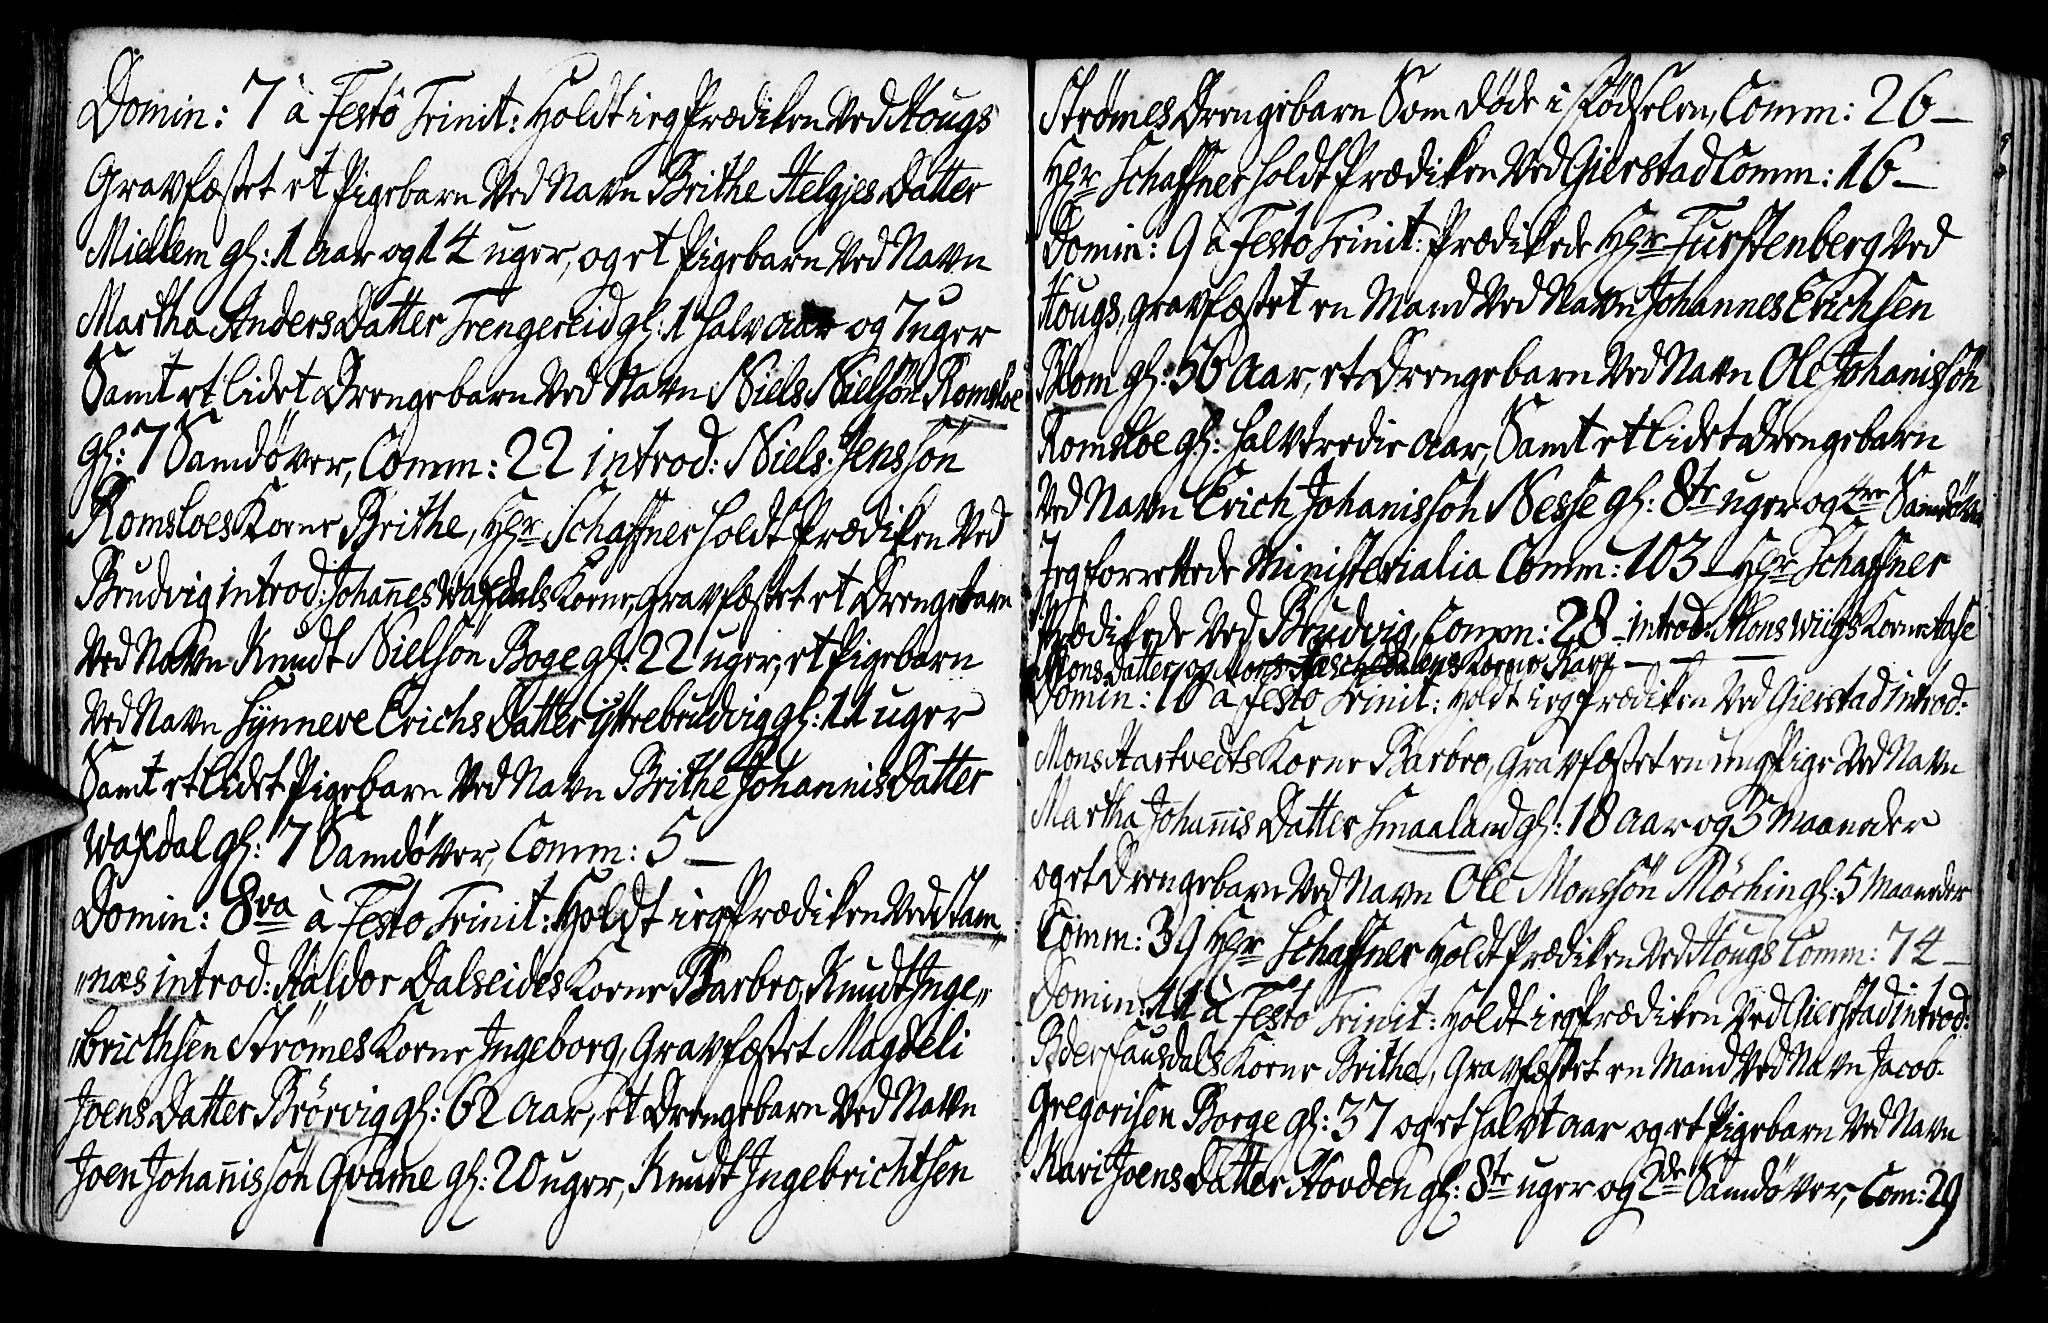 Domin: 7 à Festô Trinit: Holdt ieg Prædiken Ved Hougs
Gravfæstet et Pigebarn Ved Navn Brithe Helgjes Datter
Miellem gl: 1 Aar og 14 uger, og et Pigebarn Ved Navn
Martha Anders Datter Trengereid gl: 1 halv aar og 7 uger
Samt et lidet Drengebarn Ved Navn Niels Nielsön Romsloe
gl: 7 Samdöver, Comm: 22 introd: Niels Jenssön
Romsloes Kone Brithe, Hr Schaffner holdt Prædiken Ved
Brudvig introd: Johannes Waxdals Kone, gravfæstet et Drengebarn
Ved Navn Knudt Nielsön Boge gl: 22 uger, et Pigebarn
Ved Navn Synneve Erichs Datter Yttrebrudvig gl: 11 uger
Samt et lidet Pigebarn Ved Navn Brithe Johannis Datter
Waxdal gl: 7 Samdöver, Comm: 5 —
Domin: 8va à Festo Trinit: Holdt ieg Prædiken Ved Stam„
„næs introd: Haldor Dalseides Kone Barbro, Knudt Inge„
„bricthsen Strömes Kone Ingeborg, Gravfæstet Magdeli
Joens Datter Brörvig gl: 62 Aar, et Drengebarn Ved Navn
Joen Johannissön Qvame gl: 20 uger, Knudt Ingebrichtsen
Strömes Drengebarn Som døde i Födselen, Comm: 26 —
Hr Schaffner holdt Prædiken Ved Gierstad Comm: 16 —
Domin: 9 à Festo Trinit: Prædikede Hr Furstenberg Ved
Hougs, gravfæstet en Mand Ved Navn Johannes Erichsen
Blom gl: 56 Aar, et Drengebarn Ved Navn Ole Johanissön
Romsloe gl: halvtredie aar, Samt et lidet Drengebarn
Ved Navn Erich Johanissön Nesse gl: 8te uger og Samdöver
Jeg forrettede Ministerialia Comm: 103 — Hr Schaffner
Prædikede Ved Brudvig, Comm: 28 — introd: Mons Wiigs Kone Aase
Mons Datter, og Kone Kari — —
Domin: 10 à Festo Trinit: Holdt ieg Prædiken Ved Gierstad introd:
Mons Hartvedts Kone Barbro, Gravfæstet en ung Pige Ved Navn
Martha Johannis Datter Smaaland gl: 18 aar og 3 Maaneder
og et Drengebarn Ved Navn Ole Monssön Möching gl: 5 Maaneder
Comm: 39 Hr Schaffner Holdt Prædiken Ved Hougs Comm: 74 —
Domin: 11 à Festo Trinit: Holdt ieg Prædiken Ved Gierstad introd:
Peder Fausdals Kone Brithe, Gravfæstet en Mand Ved Navn Jacob
Gregorisen Borge gl: 37 og et halvt aar og et Pigebarn Ved Navn
Kari Joens Datter Hovden gl: 8te uger og 2de Samdöver, Com: 29